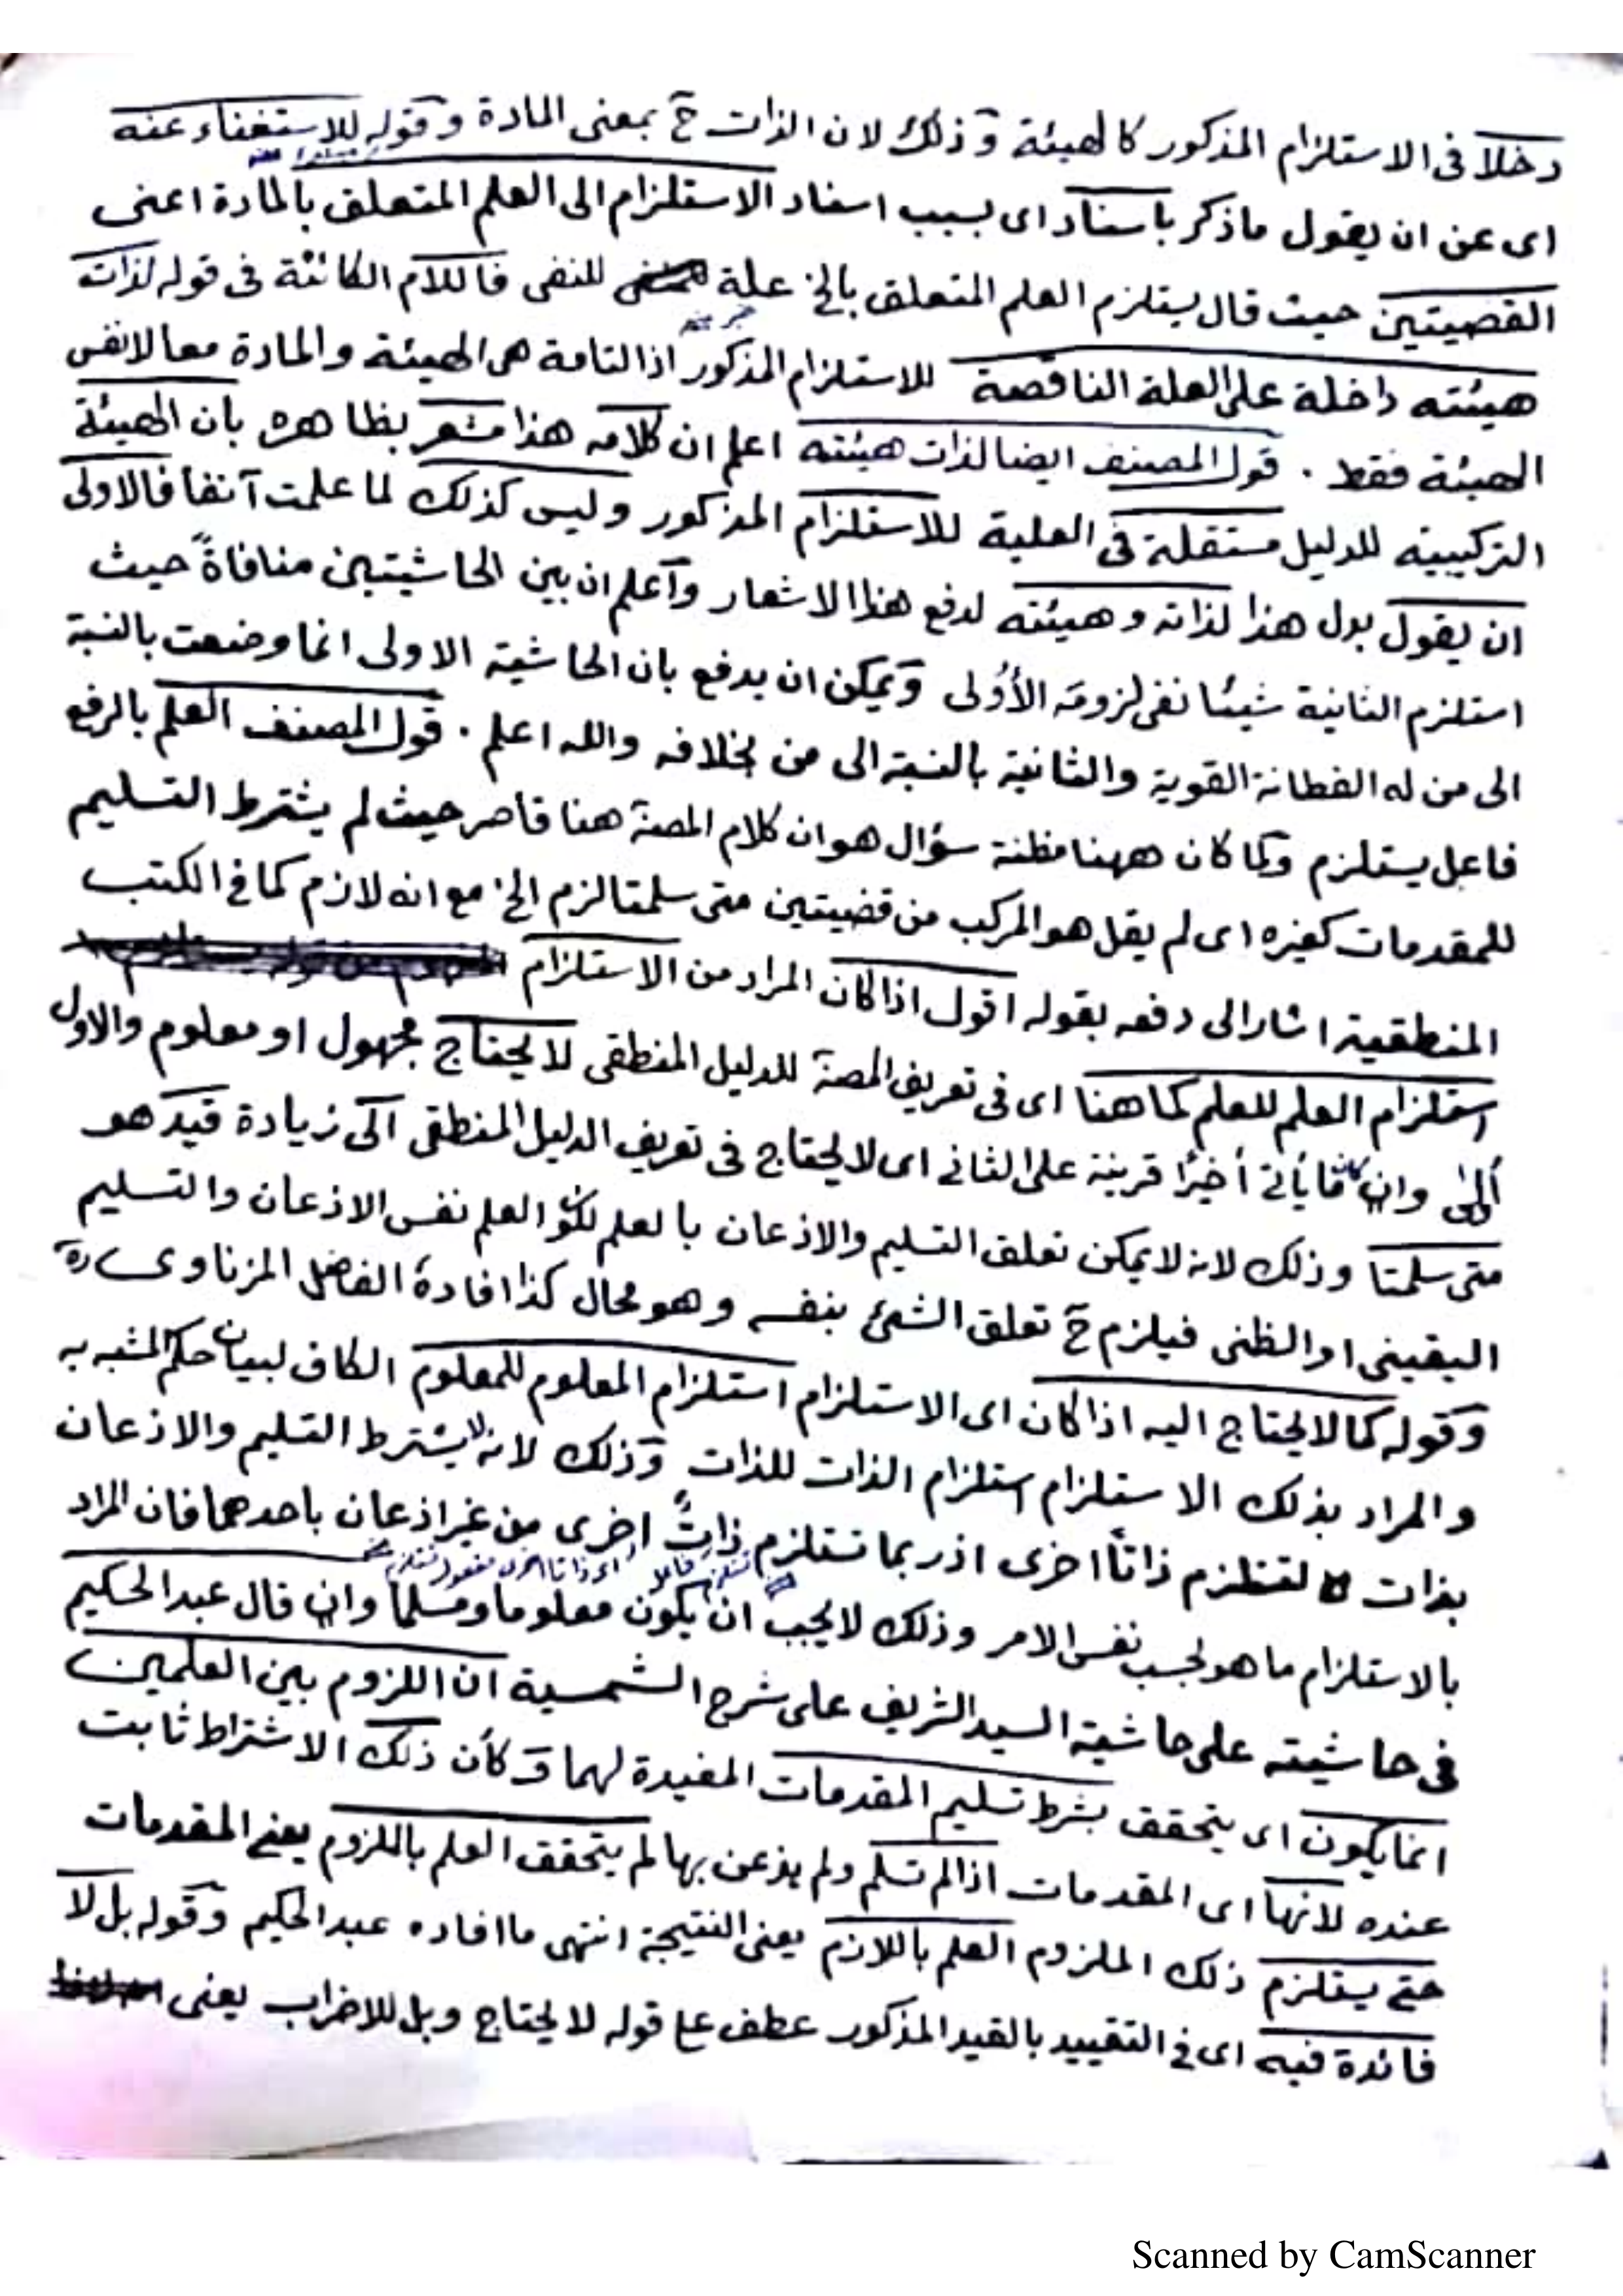 دخلا فى الاستلزام المذكور كالهيئة وذلك لان الذات ح بمعنى المادة وقوله للاستغناء عنه
اى عن ان يقول ماذكر باسناد اى بسبب اسناد الاستلزام الى العلم المتعلق بالمادة اعنى
القضيتين حيث قال يستلزم العلم المتعلق بالخ علة للنفى فاللام الكائنة فى قوله لذات
هيئته داخلة على العلة الناقصة للاستلزام المذكور اذ التامة هى الهيئة والمادة معا لانفس
الهيئة فقط . قول المصنف ايضا لذات هيئته اعلم ان كلامه هذا مشعر بظاهره بأن الهيئة
التركيبية للدليل مستقلة فى العلية للاستلزام المذكور وليس كذلك لما علمت آنفا فالاولى
ان يقول بدل هذا لذاته وهيئته لدفع هذا الاشعار وآعلم ان بين الحاشيتين منافاةً حيث
استلزم الثانية شيئا نفى لزومَه الأُولى ويمكن ان يدفع بان الحاشية الاولى انما وضعت بالنسبة
الى من له الفطانة القوية والثانية بالنسبة الى من بخلافه والله اعلم . قول المصنف العلم بالرفع
فاعل يستلزم ولما كان ههنا مظنة سؤال هو ان كلام المصنـ هنا قاصر حيث لم يشترط التسليم
للمقدمات كغيره اى لم يقل هو المركب من قضيتين متى سلمتا لزم الخ مع انه لازم كما فى الكتب
المنطقية اشار الى دفعه بقوله اقول اذا كان المراد من الاستلزام
استلزام العلم للعلم كما هنا اى فى تعريف المصنـ للدليل المنطقى لا يحتاج مجهول او معلوم والاول
أولى وان كان ما يأتى أخيرًا قرينة على الثانى اى لا يحتاج فى تعريف الدليل المنطقى الى زيادة قيد هو
متى سلمتا وذلك لانه لا يمكن تعلق التسليم والاذعان بالعلم لكون العلم نفس الاذعان والتسليم
اليقينى او الظنى فيلزم ح تعلق الشئ بنفسه وهو محال كذا افادهُ الفاضل المزناوى ره
وقوله كما لا يحتاج اليه اذا كان اى الاستلزام استلزام المعلوم للمعلوم الكاف لبيان حكم المشبه به
والمراد بذلك الاستلزام استلزام الذات للذات وذلك لانه لا يشترط التسليم والاذعان
بذات لتستلزم ذاتاً اخرى اذ ربما تستلزم ذاتٌ اخرى من غير اذعان باحدهما فان المراد
بالاستلزام ما هو بحسب نفس الامر وذلك لا يجب ان يكون معلوما ومسلما وان قال عبد الحكيم
فى حاشيته على حاشية السيد الشريف على شرح الشمسية ان اللزوم بين العلمين
انما يكون اى يتحقق بشرط تسليم المقدمات المفيدة لهما وكأن ذلك الاشتراط ثابت
عنده لانها اى المقدمات اذا لم تسلم ولم يذعن بها لم يتحقق العلم باللزوم يعنى المقدمات
حتى يستلزم ذلك الملزوم العلم باللازم يعنى النتيجة انتهى ما افاده عبد الحكيم وقوله بل لا
فائدة فيه اى فى التقييد بالقيد المذكور عطف على قوله لا يحتاج وبل للاضراب يعنى
Scanned by CamScanner